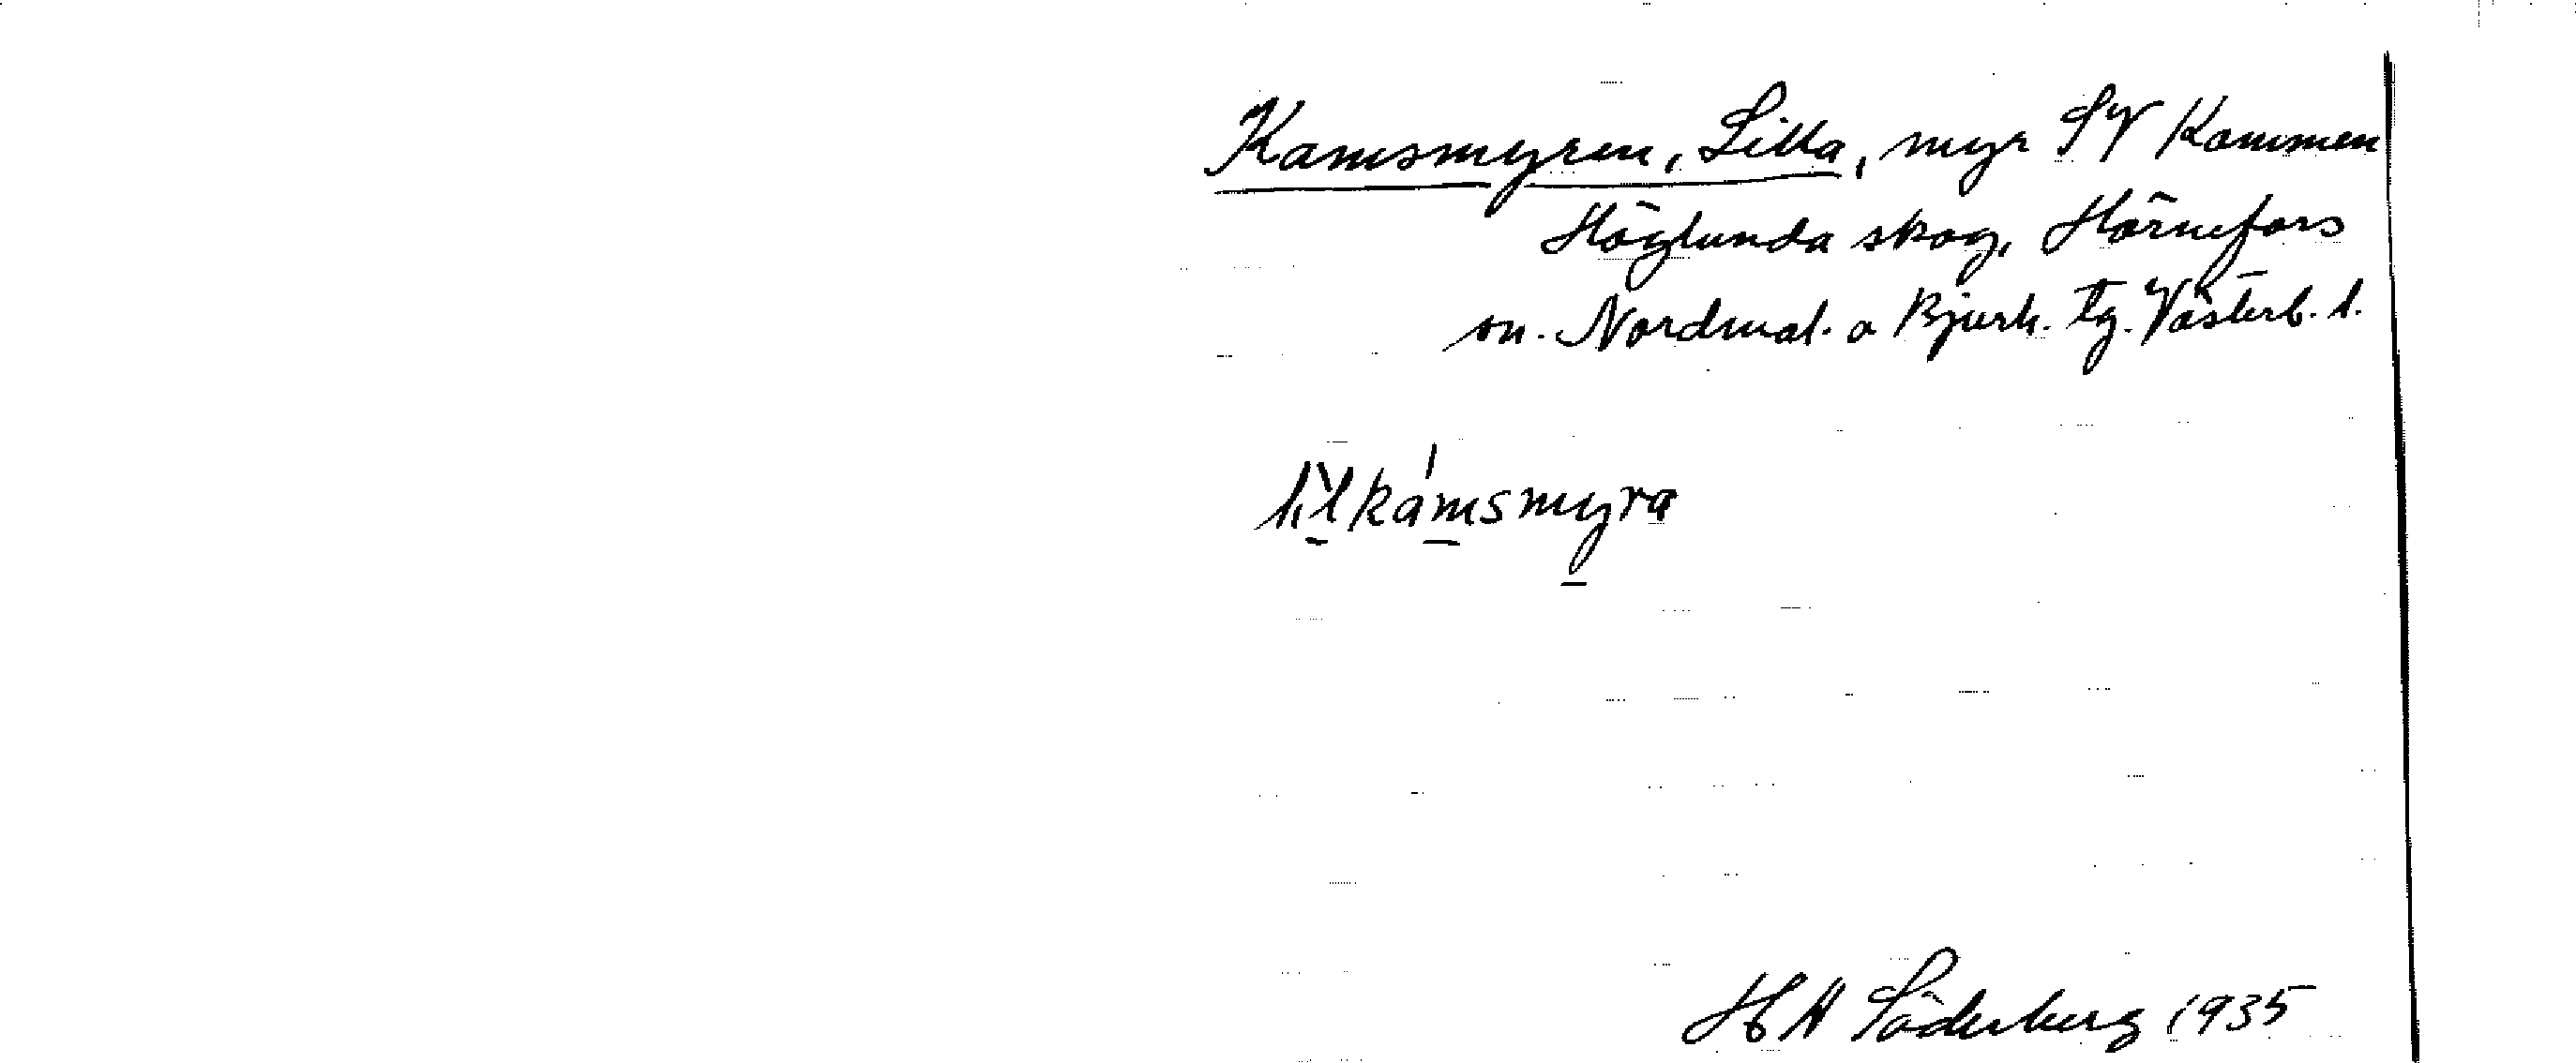 Kamsmyren, Lilla, myr SV Kammen
Höglunda skog, Hörnefors
sn. Nordmal. o Bjurh. tg. Västerb. l.
lìlkámsmyra
H A Söderberg 1935